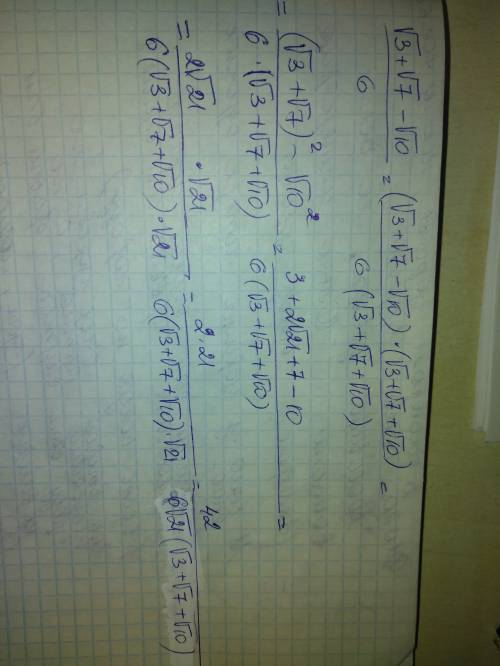 (√3 + √7 − √10)/6 = ((√3 + √7 − √10) · (√3 + √7 + √10))/(6 (√3 + √7 + √10)) =
= ((√3 + √7)² − √10²)/(6 · (√3 + √7 + √10)) = (3 + 2√21 + 7 − 10)/(6 (√3 + √7 + √10)) =
= (2√21 · √21)/(6 (√3 + √7 + √10) · √21) = (2 · 21)/(6 (√3 + √7 + √10) · √21) = 42/(6√21 (√3 + √7 + √10))